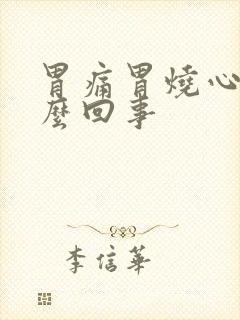 胃痛胃燒心
麼回事
李信華